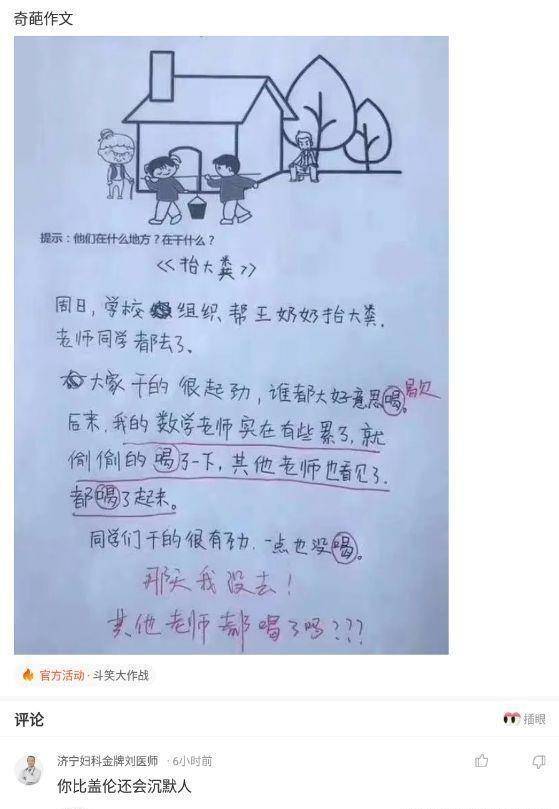 奇葩作文
提示：他们在什么地方？在干什么？
《抬大粪》
周日，学校组织帮王奶奶抬大粪，
老师同学都去了。
大家干的很起劲，谁都大好意思喝。歇
后来，我的数学老师实在有些累了，就
偷偷的喝了一下，其他老师也看见了，
都喝了起来。
同学们干的很有劲，一点也没喝。
那天我没去！
其他老师都喝了吗？？？
官方活动 · 斗笑大作战
评论
插眼
济宁妇科金牌刘医师 · 6小时前
你比盖伦还会沉默人